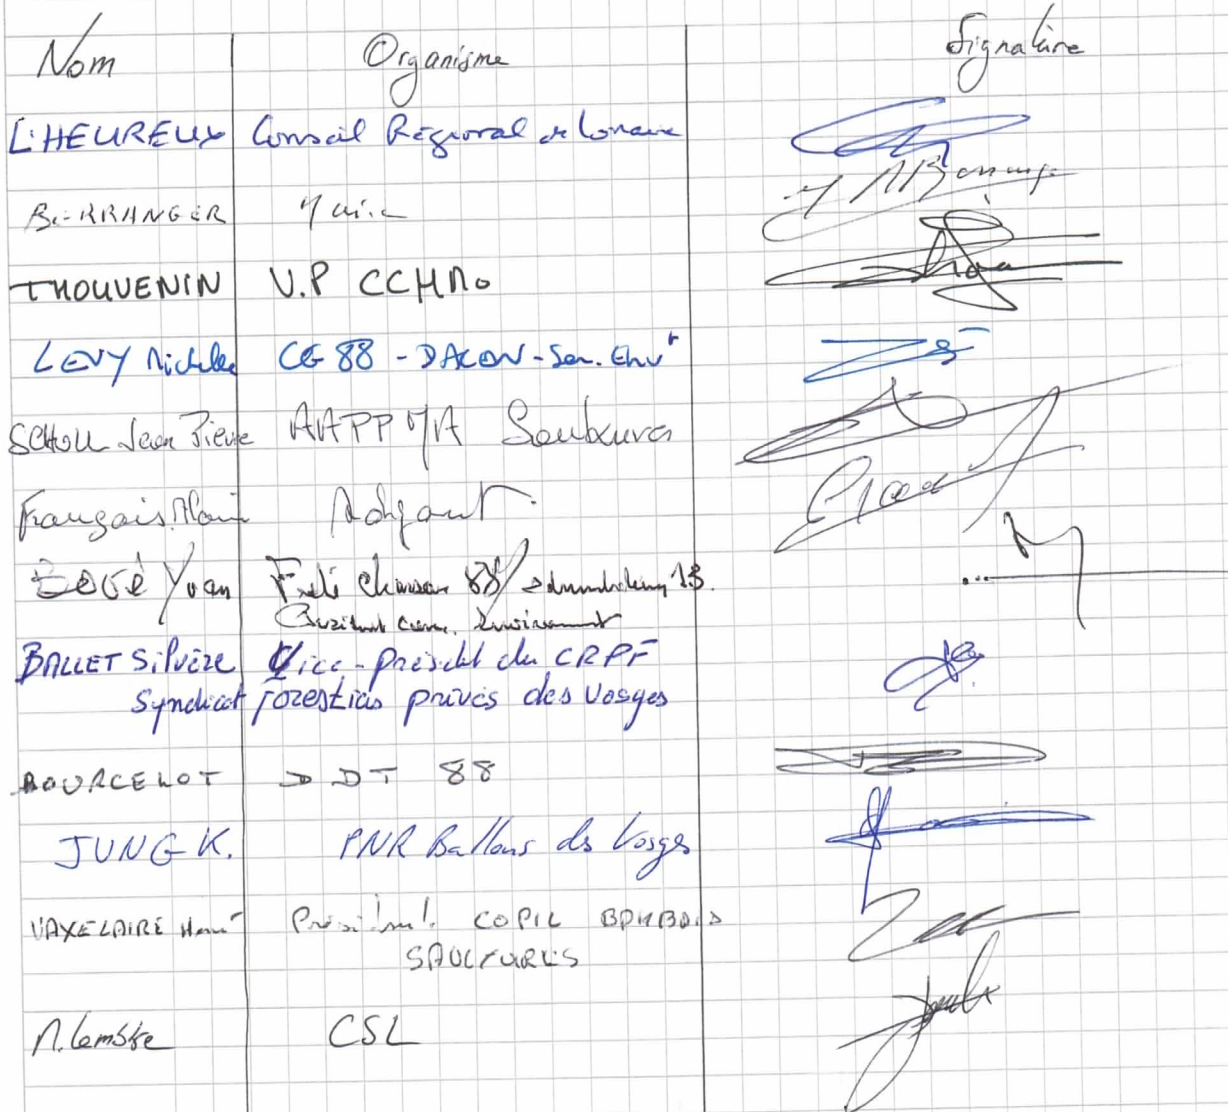 Nom Organisme Signature
L'HEUREUX Conseil Régional de Lorraine
BERRANGER Mairie
THOUVENIN V.P CCHMO
LEVY Michèle CG 88 - DAEN - Ser. Envt
SCHOLL Jean Pierre AAPPMA Saulxures
François Alain Adjoint
Yvan Fédé Chasse 88
BALLET Silvère Vice-présidt du CRPF
Syndicat forestiers privés des Vosges
BOURCELOT DDT 88
JUNG K. PNR Ballons des Vosges
VAXELAIRE Hervé Président COPIL
SAULXURES
M. Lemske CSL